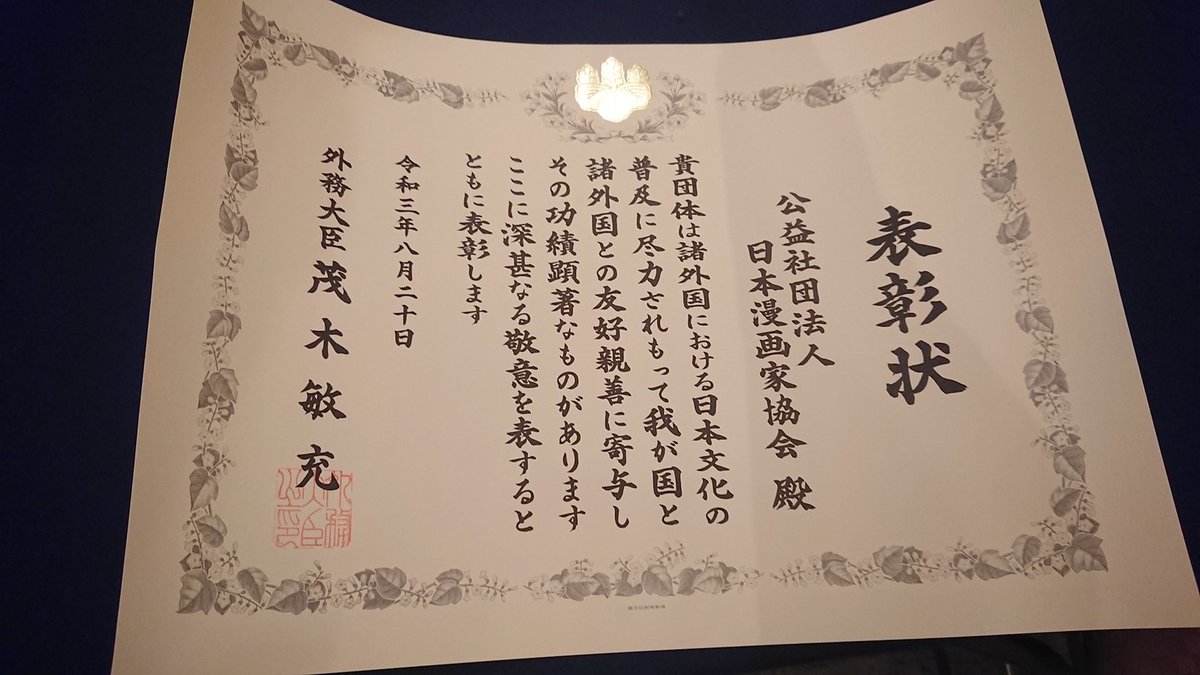 表彰状
公益社団法人
日本漫画家協会 殿
貴団体は諸外国における日本文化の
普及に尽力されもって我が国と
諸外国との友好親善に寄与し
その功績顕著なものがあります
ここに深甚なる敬意を表すると
ともに表彰します
令和三年八月二十日
外務大臣 茂木敏充